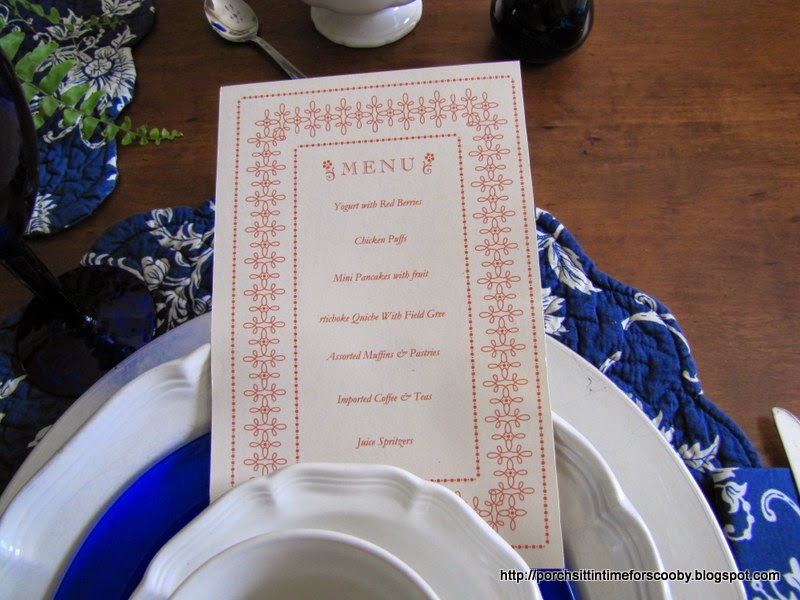 MENU
Yogurt with Red Berries
Chicken Puffs
Mini Pancakes with fruit
rtichoke Quiche With Field Gree
Assorted Muffins & Pastries
Imported Coffee & Teas
Juice Spritzers
http://porchsittintimeforscooby.blogspot.com